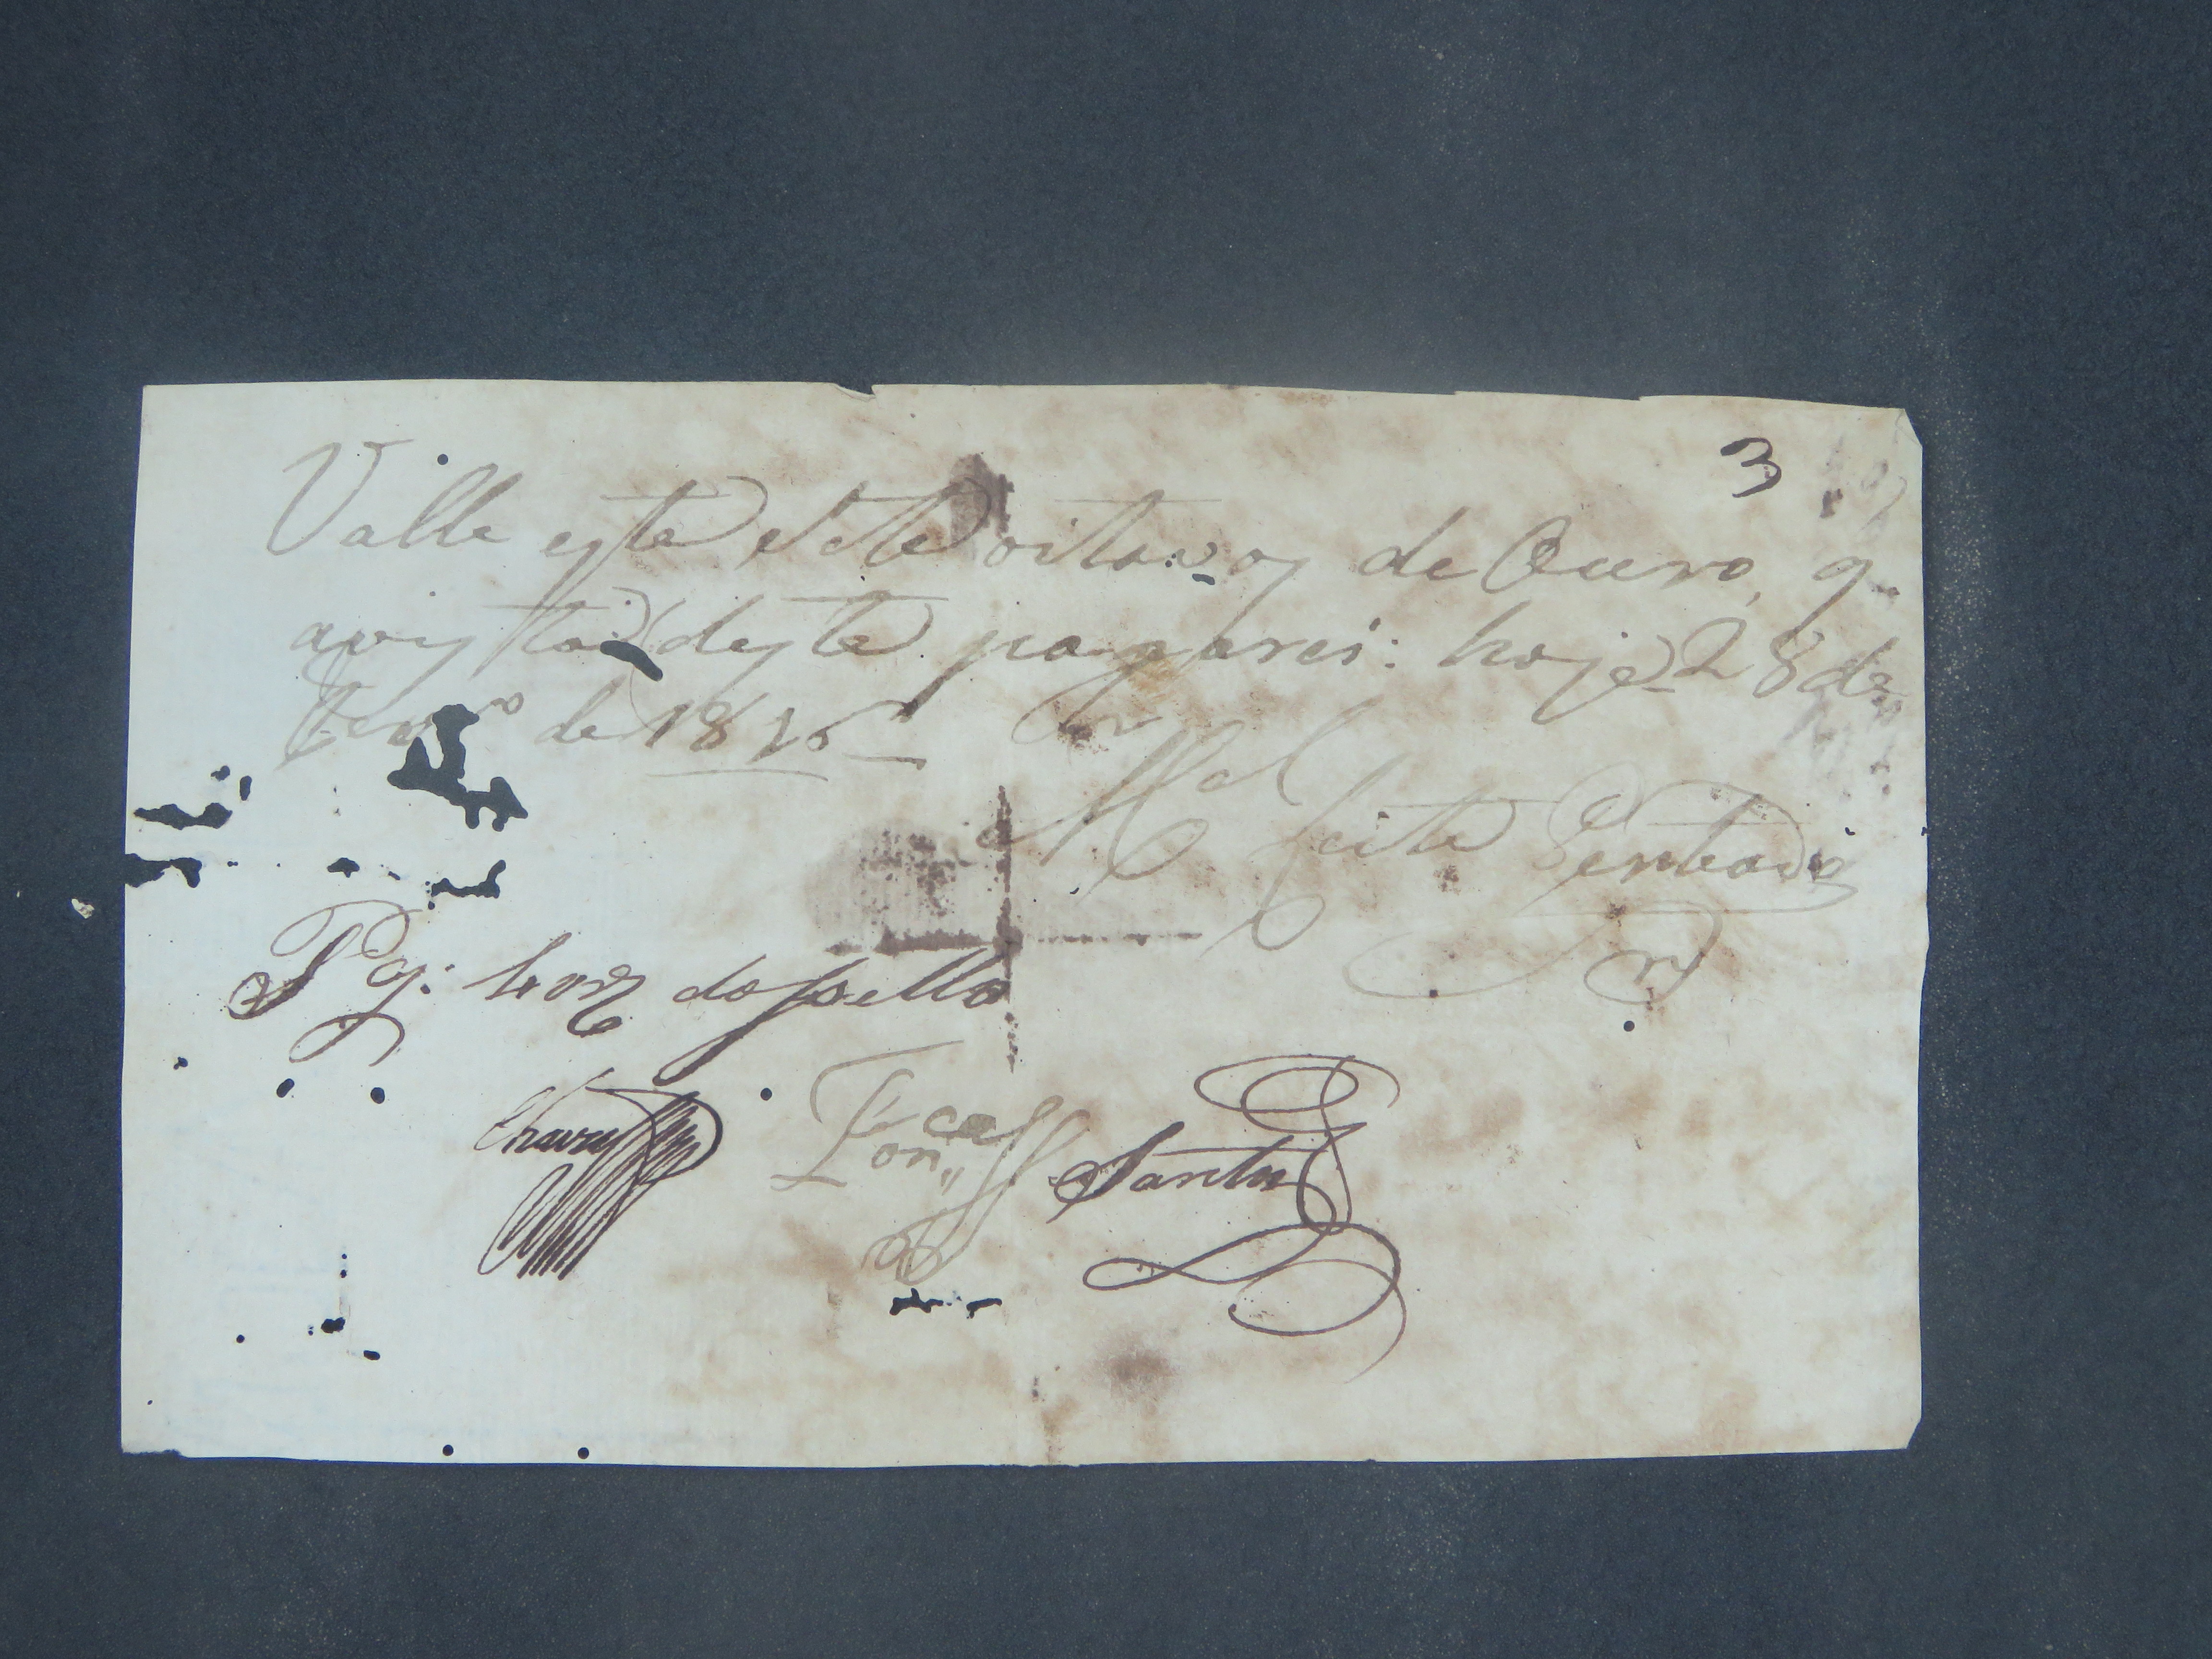 3
Valle este Sete oitavos de Ouro, q.
avista deste pagarei: hoje 28 de
Fevr.o de 1816
M.el Leite Penteado
Pg: 40 rs do Sello
Chaves Fon.ca Santos